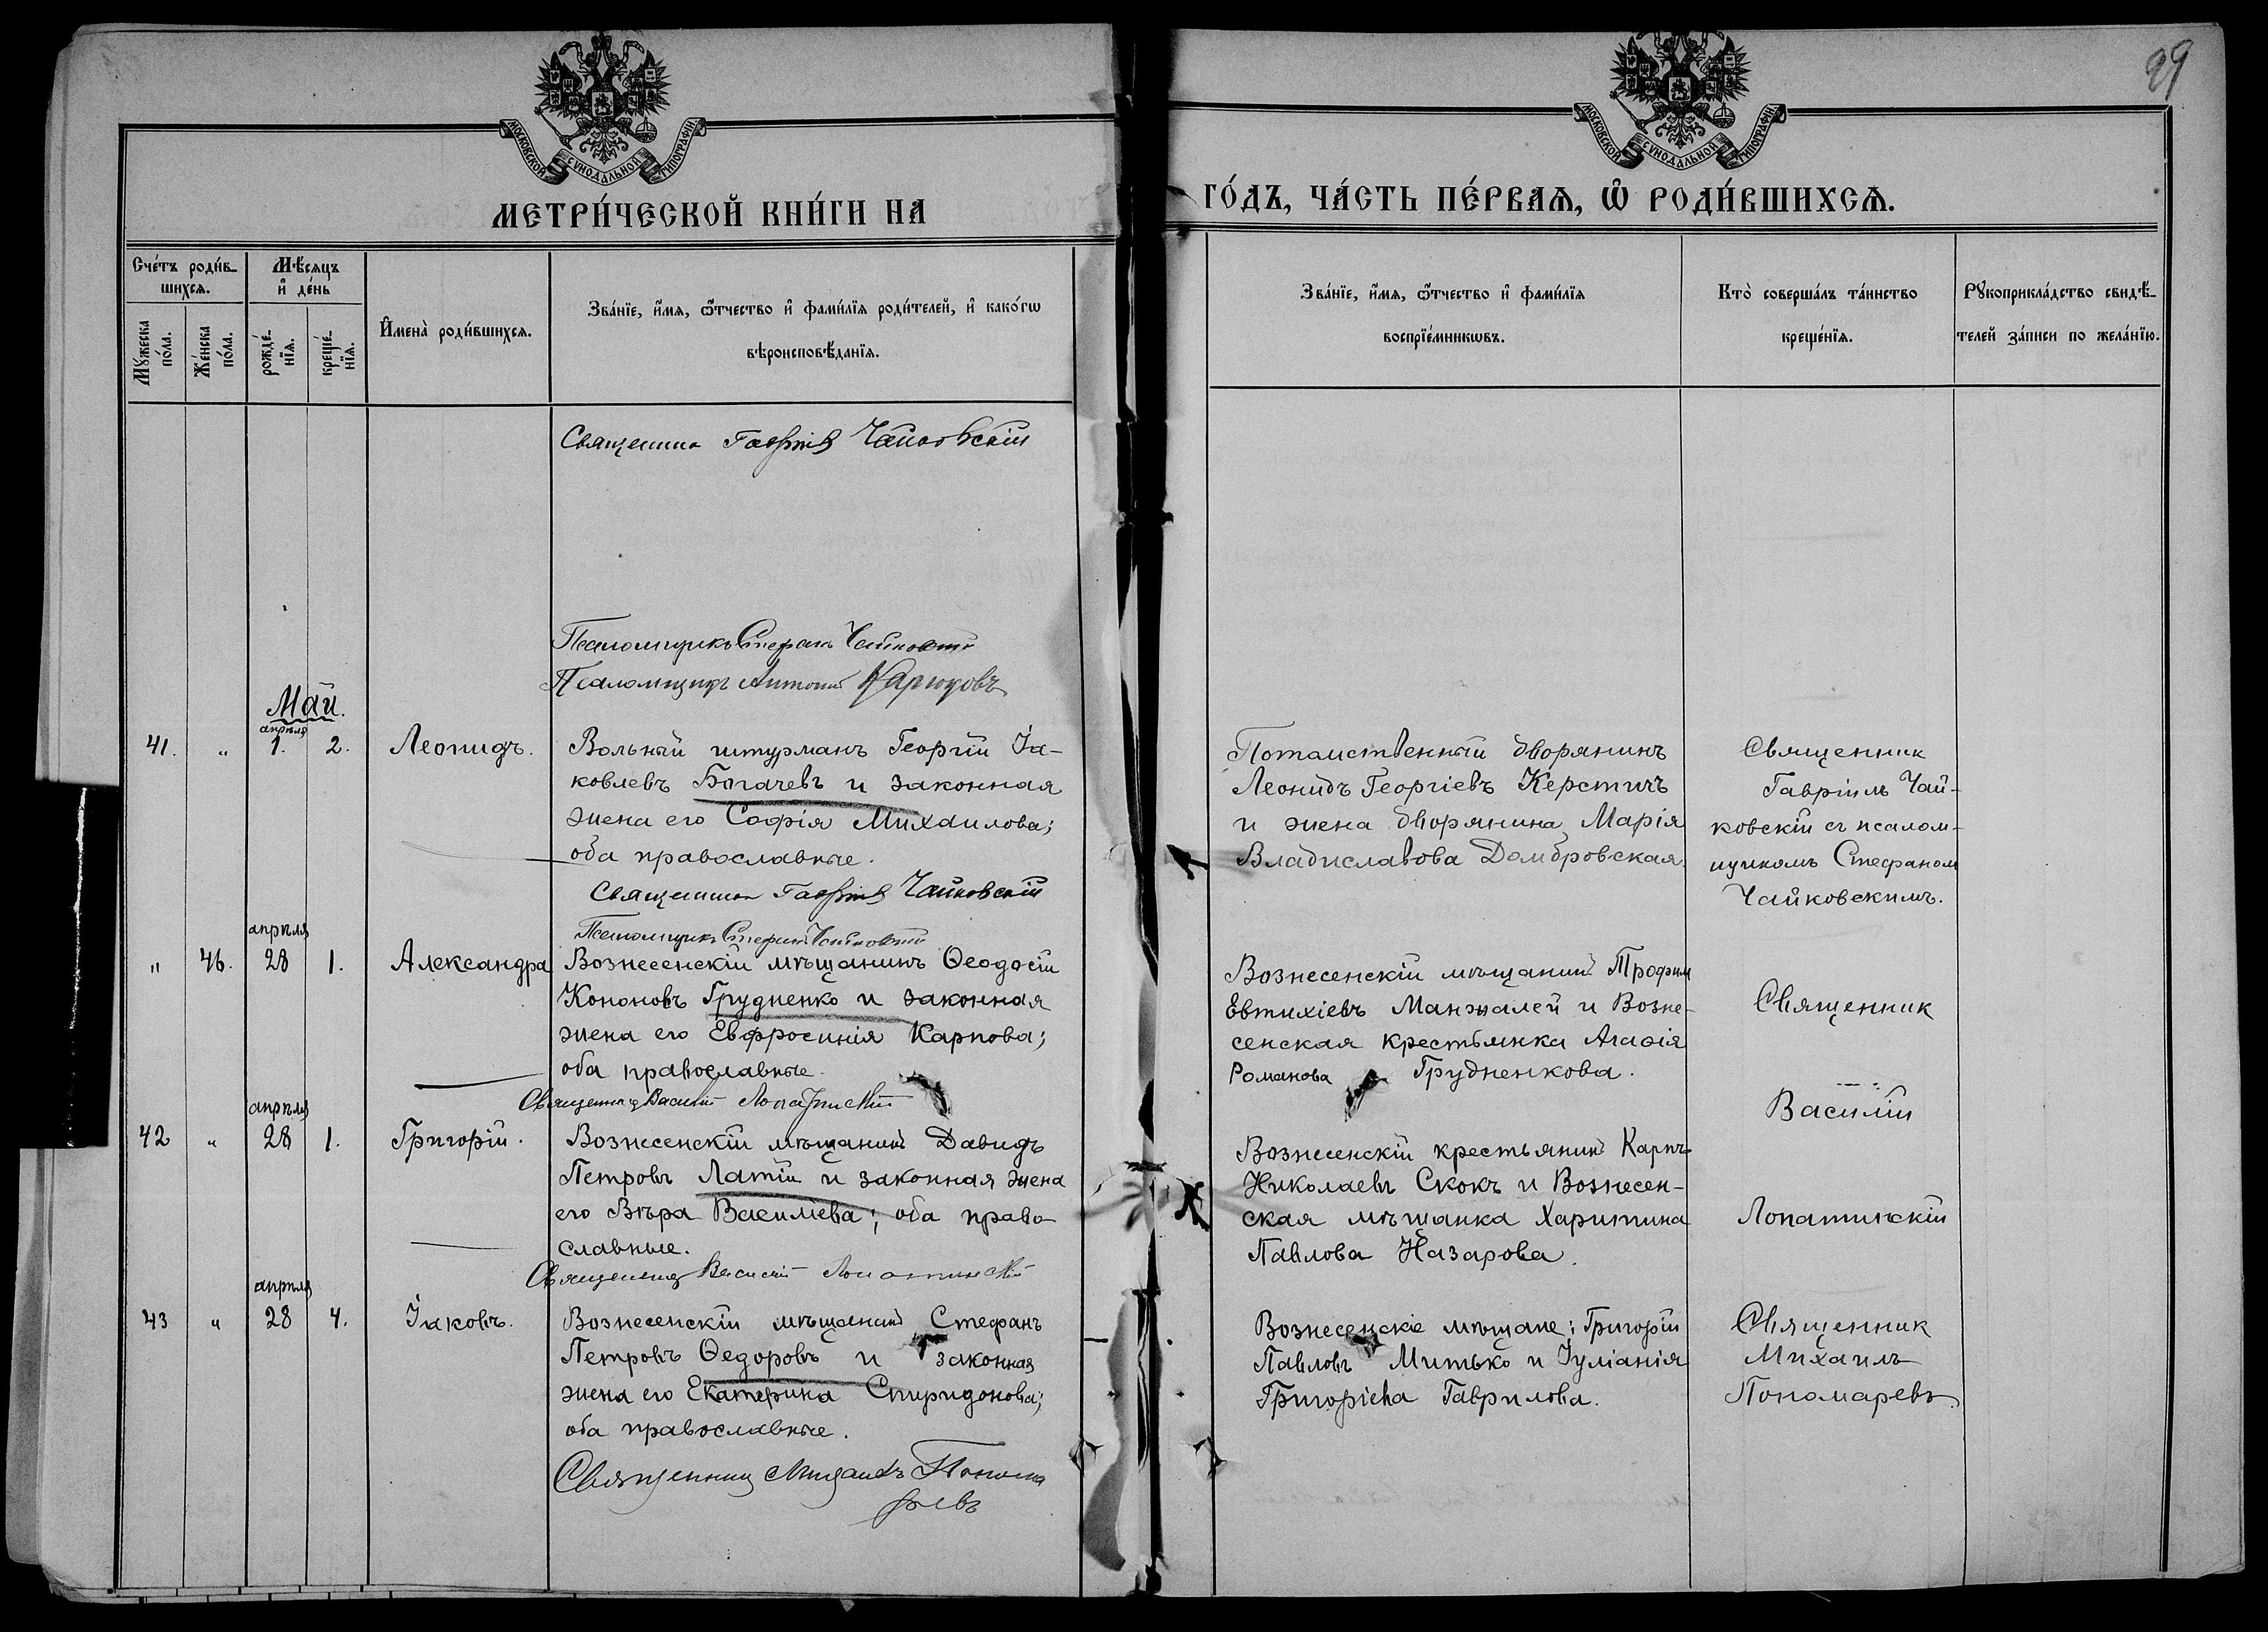 29
МОСКОВСКОЙ СУНОДАЛЬНОЙ ТИПОГРАФІИ
МОСКОВСКОЙ СУНОДАЛЬНОЙ ТИПОГРАФІИ
МЕТРИ́ЧЕСКОЙ КНИ́ГИ НА
ГО́ДЪ, ЧА́СТЬ ПЕ́РВАѦ, Ѡ҆ РОДИ́ВШИХСѦ.
Сче́тъ роди́в-
шихсѧ.
Мѣ́сѧцъ
и҆ де́нь
Мꙋ́жеска
по́ла.
Же́нска
по́ла.
рожде́-
нїѧ.
креще́-
нїѧ.
И҆мена̀ роди́вшихсѧ.
Зва́нїе, и҆́мѧ, ѻ҆́тчество и҆ фами́лїѧ роди́телей, и҆ како́гѡ
вѣроисповѣ́данїѧ.
Зва́нїе, и҆́мѧ, ѻ҆́тчество и҆ фами́лїѧ
воспрїе́мникѡвъ.
Кто̀ соверша́лъ та́инство
креще́нїѧ.
Рꙋкоприкла́дство свидѣ́-
телей за́писи по жела́нїю.
Священник Гавріил Чайковскій
Псаломщикъ Стефанъ Чайковскій
Псаломщикъ Антоній Карюковъ
Май.
апрѣля
41. " 1. 2. Леонидъ.
Вольный штурманъ Георгій Іа-
ковлевъ Богачевъ и законная
жена его Софія Михаилова;
оба православные.
Священник Гавріил Чайковскій
Псаломщикъ Стефанъ Чайковскій
Потомственный дворянинъ
Леонидъ Георгіевъ Керстичъ
и жена дворянина Марія
Владиславова Домбровская.
Священник
Гавріилъ Чай-
ковскій съ псалом-
щикомъ Стефаном
Чайковскимъ.
апрѣля
" 46. 28 1. Александра
Вознесенскій мѣщанинъ Ѳеодосій
Кононовъ Грудненко и законная
жена его Евфросинія Карпова;
оба православные.
Священникъ Василій Лопатинскій
Вознесенскій мѣщанинъ Трофим
Евтихіевъ Манжалей и Возне-
сенская крестьянка Агафія
Романова Грудненкова.
Священник
Василій
Лопатинскій
апрѣля
42 " 28 1. Григорій.
Вознесенскій мѣщанинъ Давидъ
Петровъ Латій и законная жена
его Вѣра Васильева; оба право-
славные.
Священникъ Василій Лопатинскій
Вознесенскій крестьянинъ Карпъ
Николаевъ Скокъ и Вознесен-
ская мѣщанка Харитина
Павлова Назарова.
апрѣля
43 " 28 4. Іаковъ.
Вознесенскій мѣщанинъ Стефанъ
Петровъ Ѳедоровъ и законная
жена его Екатерина Спиридонова;
оба православные.
Священникъ Михаилъ Понома
ревъ
Вознесенскіе мѣщане: Григорій
Павловъ Митько и Іуліанія
Григоріева Гаврилова.
Священник
Михаилъ
Пономаревъ.